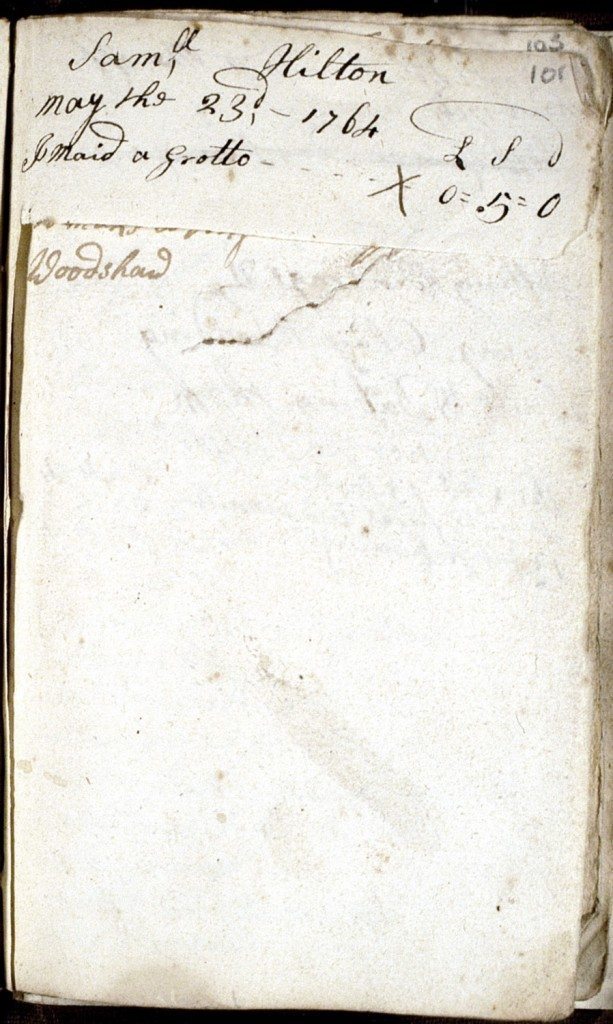 103
101
Sam,ll Hilton
may the 23,d - 1764
L S d
I maid a grotto - - - - - X 0=.5=0
Woodshaw